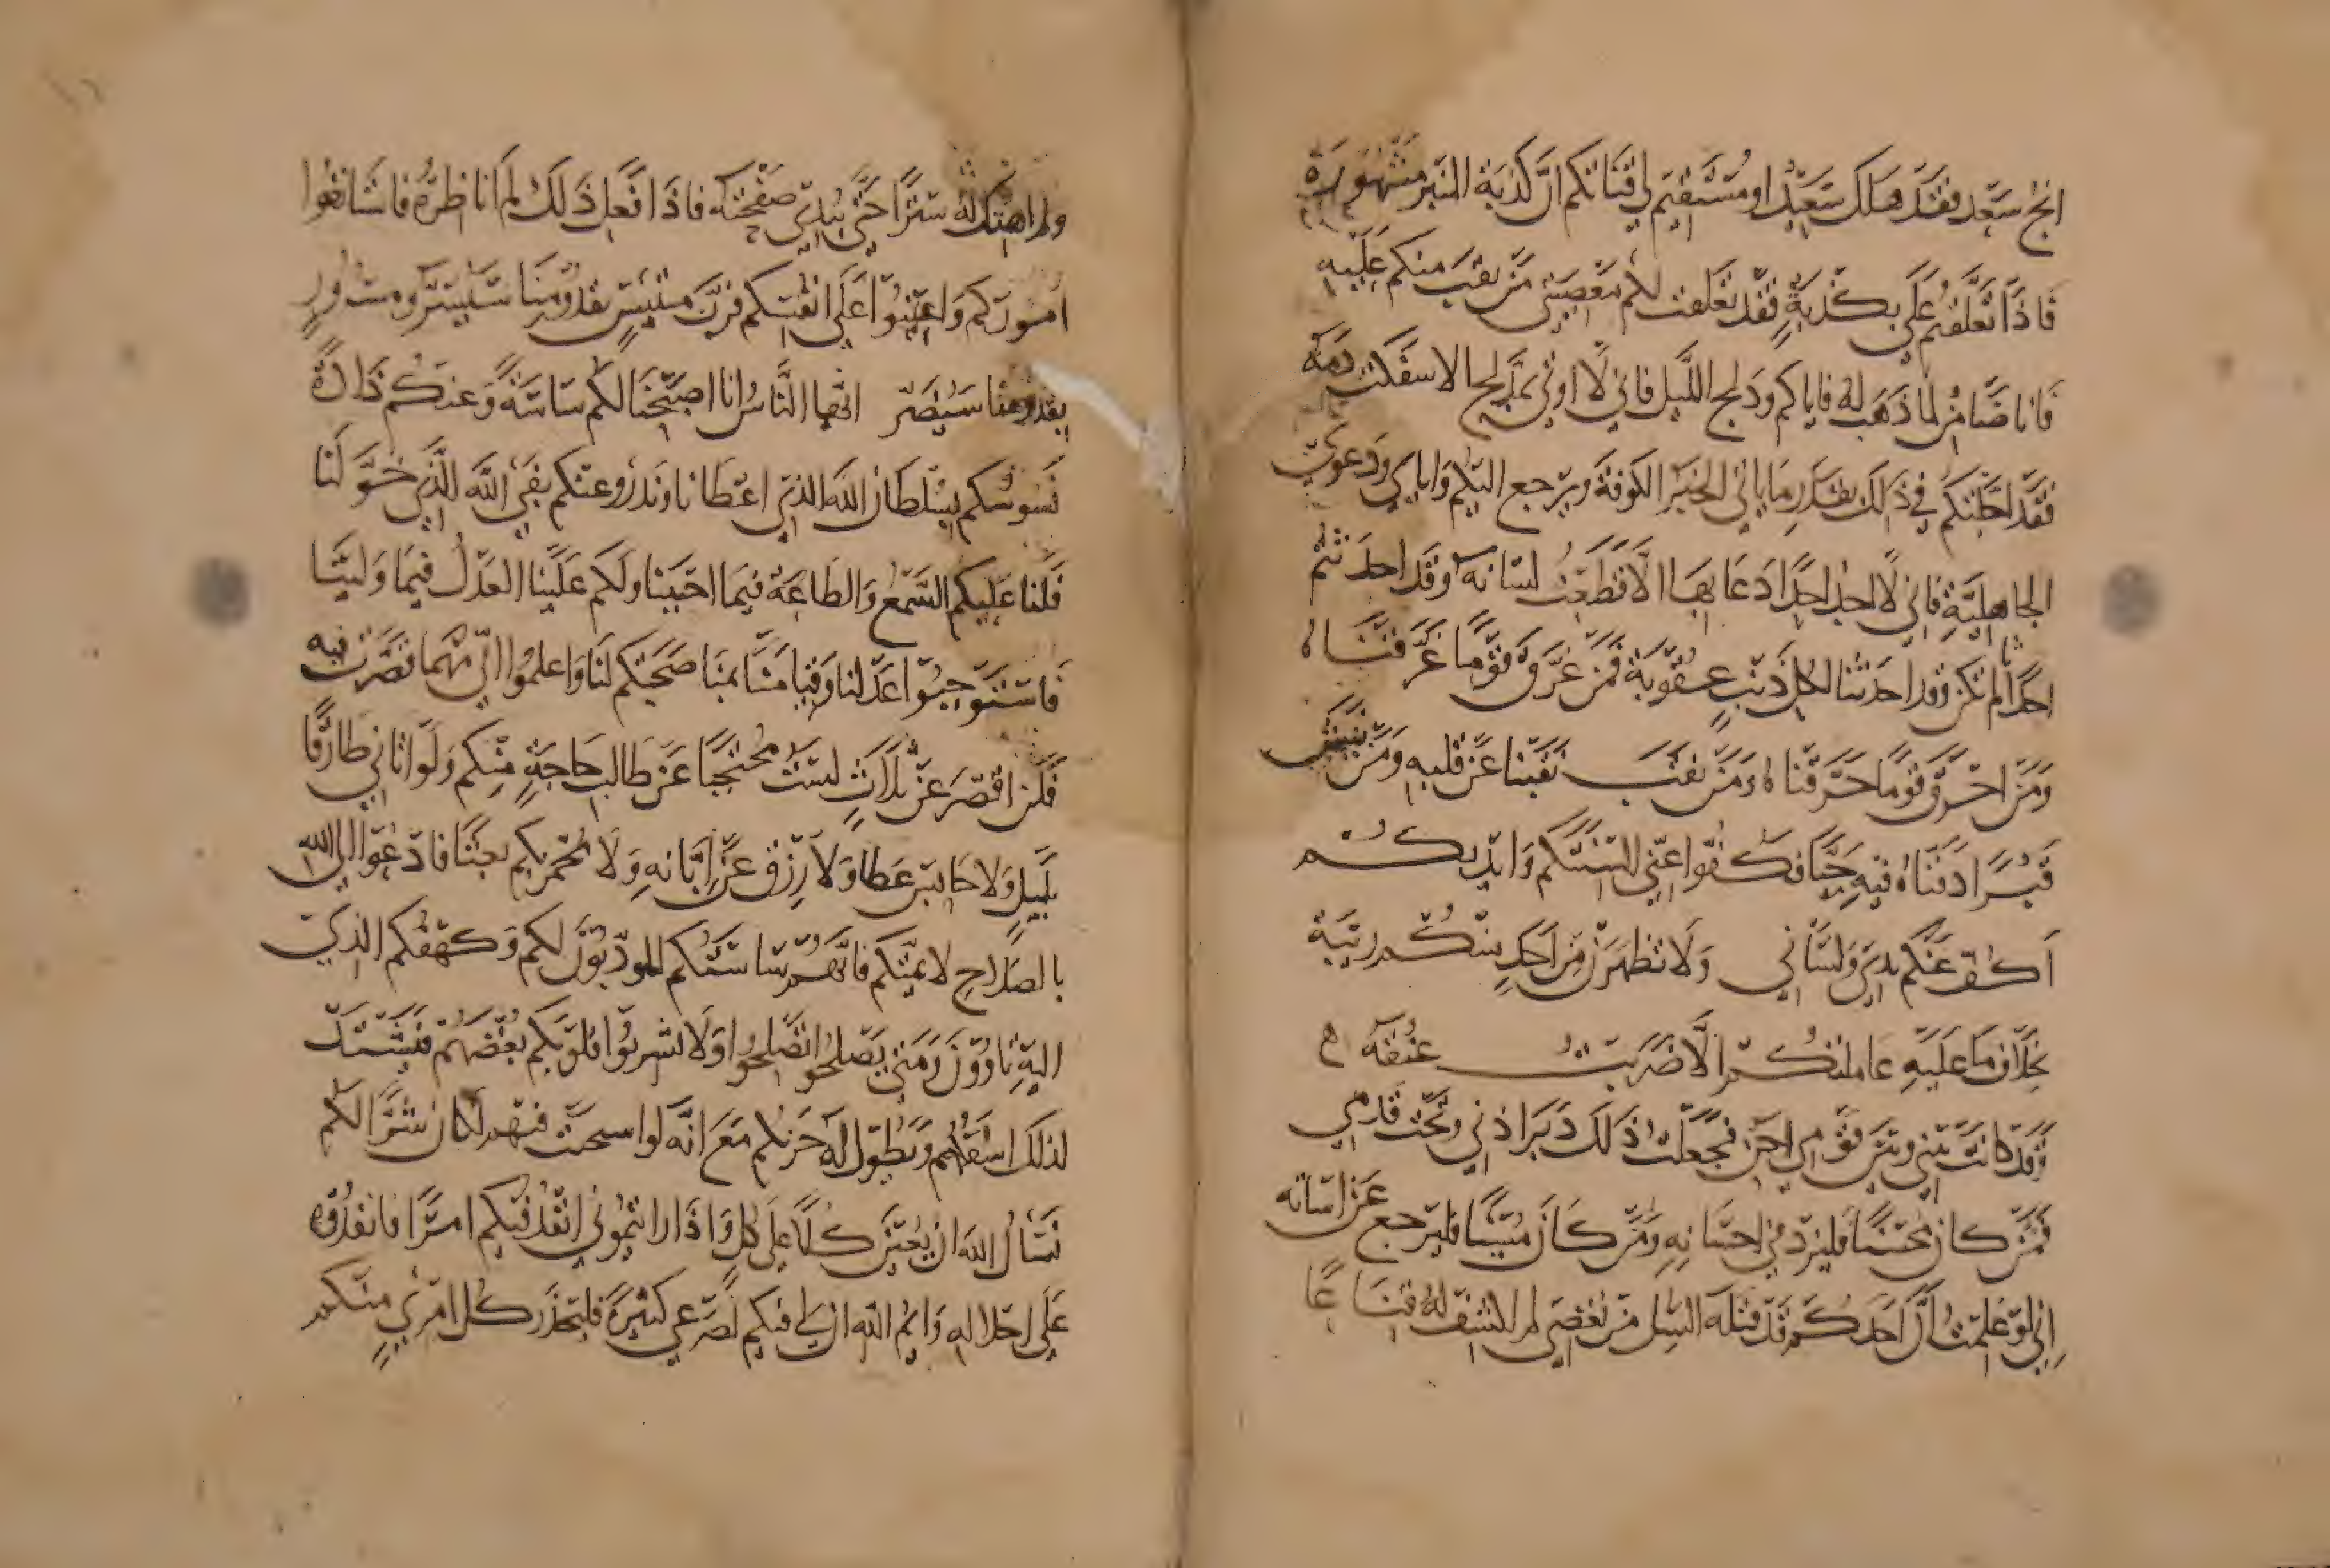 انج سعد فقد هلك سعيد او مستقيم لي قناتكم ان كذبة المنبر مشهورة
فاذا تعلقتم علي بكذبة فقد تعلقت لكم بمعصيتي من نقب منكم عليه
فانا ضامن لما ذهب له فاياكم ودلج الليل فاني لا اوتى بمدلج الا سفكت دمه
فقد اجلتكم في ذلك بقدر ما ياتي الخبر الكوفة ويرجع اليكم واياي ودعوى
الجاهلية فاني لا اجد احدا دعا بها الا قطعت لسانه وقد احدثتم
احداثا لم تكن وقد احدثنا لكل ذنب عقوبة فمن غرق قوما غرقناه
ومن احرق قوما حرقناه ومن نقب نقبنا عن قلبه ومن نبش
قبرا دفناه فيه حيا فكفوا عني السنتكم وايديكم
اكفف عنكم يدي ولساني ولا تظهرن من احد منكم ريبة
بخلاف ما عليه عامتكم الا ضربت عنقه ه
وقد كانت بيني وبين قوم احن فجعلت ذلك دبر اذني وتحت قدمي
فمن كان محسنا فليزدد في احسانه ومن كان مسيا فليرجع عن اساته
اني لو علمت ان احدكم قد قتله السل من بغضي لم اكشف له قناعا
ولم اهتك له سترا حتى يبدي صفحته فاذا فعل ذلك لم اناظره فاستانفوا
اموركم واعينوا على انفسكم فرب مبتيس بقدومنا سيسر ومسرور
بقدومنا سيضر ايها الناس انا اصبحنا لكم ساسة وعنكم ذادة
نسوسكم بسلطان الله الذي اعطانا ونذود عنكم بفي الله الذي خولنا
فلنا عليكم السمع والطاعة فيما احببنا ولكم علينا العدل فيما ولينا
فاستوجبوا عدلنا وفيانا بمناصحتكم لنا واعلموا اني مهما قصرت فيه
فلن اقصر عن ثلاث لست محتجبا عن طالب حاجة منكم ولو اتاني طارقا
بليل ولا حابس عطا ولا رزق عن ابانه ولا مجمر بكم بعثا فادعوا الى الله
بالصلاح لايمتكم فانهم ساستكم المودبون لكم وكهفكم الذي
اليه تاوون ومتى يصلحوا تصلحوا ولا تشربوا قلوبكم بغضهم فيشتد
لذلك اسفكم ويطول له حزنكم مع انه لو استجيب فيهم لكان شرا لكم
نسال الله ان يعين كلا على كل واذا رايتموني انفذ فيكم امرا فانفذوه
على اذلاله وايم الله ان لي فيكم لصرعى كثيرة فليحذر كل امرئ منكم